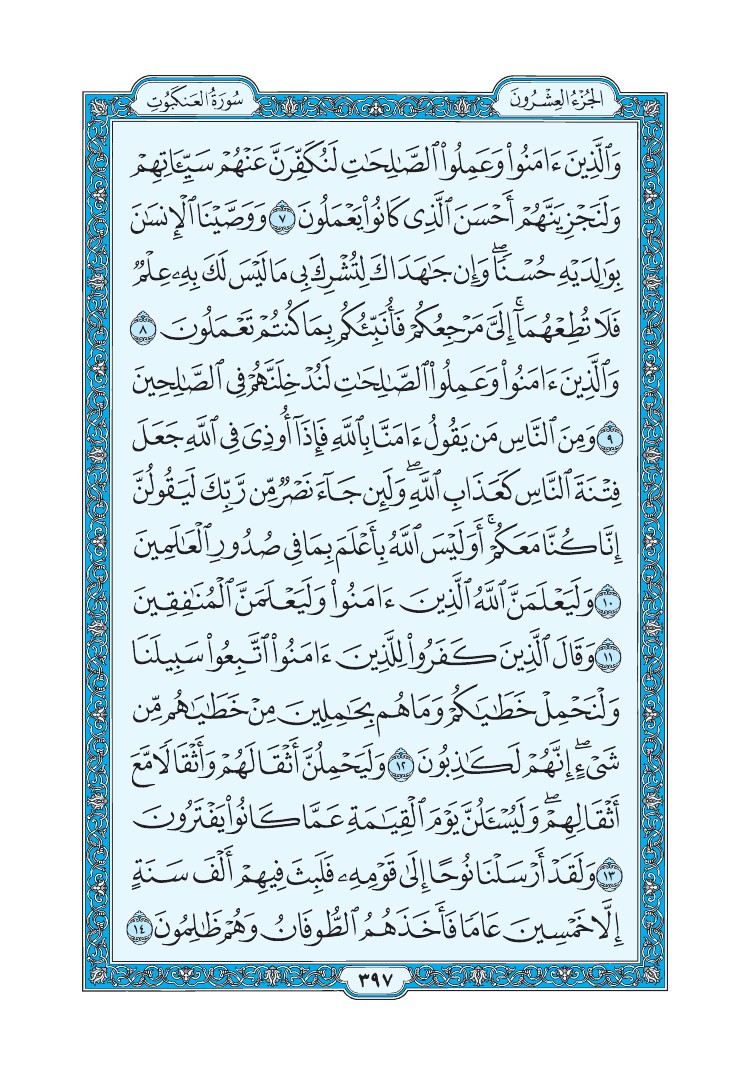 الجزء العشرون
سورة العنكبوت
وَٱلَّذِينَ ءَامَنُوا۟ وَعَمِلُوا۟ ٱلصَّـٰلِحَـٰتِ لَنُكَفِّرَنَّ عَنْهُمْ سَيِّـَٔاتِهِمْ
وَلَنَجْزِيَنَّهُمْ أَحْسَنَ ٱلَّذِى كَانُوا۟ يَعْمَلُونَ ٧ وَوَصَّيْنَا ٱلْإِنسَـٰنَ
بِوَٰلِدَيْهِ حُسْنًۭا ۖ وَإِن جَـٰهَدَاكَ لِتُشْرِكَ بِى مَا لَيْسَ لَكَ بِهِۦ عِلْمٌۭ
فَلَا تُطِعْهُمَآ ۚ إِلَىَّ مَرْجِعُكُمْ فَأُنَبِّئُكُم بِمَا كُنتُمْ تَعْمَلُونَ ٨
وَٱلَّذِينَ ءَامَنُوا۟ وَعَمِلُوا۟ ٱلصَّـٰلِحَـٰتِ لَنُدْخِلَنَّهُمْ فِى ٱلصَّـٰلِحِينَ
٩ وَمِنَ ٱلنَّاسِ مَن يَقُولُ ءَامَنَّا بِٱللَّهِ فَإِذَآ أُوذِىَ فِى ٱللَّهِ جَعَلَ
فِتْنَةَ ٱلنَّاسِ كَعَذَابِ ٱللَّهِ ۖ وَلَئِن جَآءَ نَصْرٌۭ مِّن رَّبِّكَ لَيَقُولُنَّ
إِنَّا كُنَّا مَعَكُمْ ۚ أَوَلَيْسَ ٱللَّهُ بِأَعْلَمَ بِمَا فِى صُدُورِ ٱلْعَـٰلَمِينَ
١٠ وَلَيَعْلَمَنَّ ٱللَّهُ ٱلَّذِينَ ءَامَنُوا۟ وَلَيَعْلَمَنَّ ٱلْمُنَـٰفِقِينَ
١١ وَقَالَ ٱلَّذِينَ كَفَرُوا۟ لِلَّذِينَ ءَامَنُوا۟ ٱتَّبِعُوا۟ سَبِيلَنَا
وَلْنَحْمِلْ خَطَـٰيَـٰكُمْ وَمَا هُم بِحَـٰمِلِينَ مِنْ خَطَـٰيَـٰهُم مِّن
شَىْءٍ ۖ إِنَّهُمْ لَكَـٰذِبُونَ ١٢ وَلَيَحْمِلُنَّ أَثْقَالَهُمْ وَأَثْقَالًۭا مَّعَ
أَثْقَالِهِمْ ۖ وَلَيُسْـَٔلُنَّ يَوْمَ ٱلْقِيَـٰمَةِ عَمَّا كَانُوا۟ يَفْتَرُونَ
١٣ وَلَقَدْ أَرْسَلْنَا نُوحًا إِلَىٰ قَوْمِهِۦ فَلَبِثَ فِيهِمْ أَلْفَ سَنَةٍ
إِلَّا خَمْسِينَ عَامًۭا فَأَخَذَهُمُ ٱلطُّوفَانُ وَهُمْ ظَـٰلِمُونَ ١٤
٣٩٧